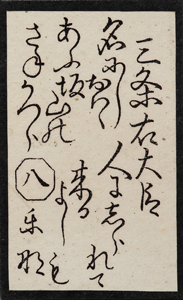 三条右大臣
名にし
おはゝ
あふ坂山の
さねかつら
人に志られて
来る
よしも
か那
八